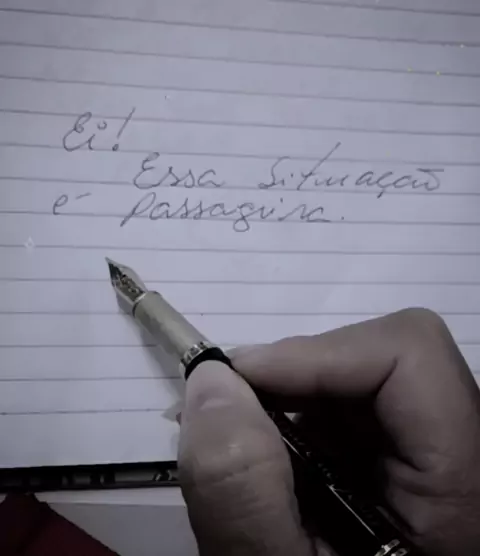 Ei!
Essa Situação
é passageira.